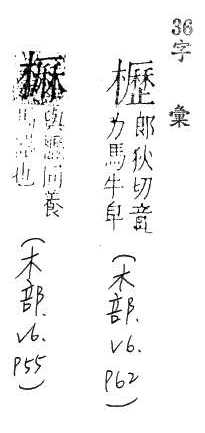 36
字彙
櫪
郎狄切音
力馬牛皁
(木部.v6.p62)
櫪
與櫪同養
馬器也
(木部.v6.p55)